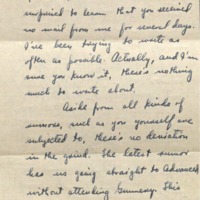 surprised to learn that you received
no mail from me for several days.
I've been trying to write as
often as possible. Actually, and I'm
sure you know it, there's nothing
much to write about.
Aside from all kinds of
rumors, such as you yourself are
subjected to, there's no deviation
in the grind. The latest rumor
has us going straight to Advanced,
without attending Gunnery. This